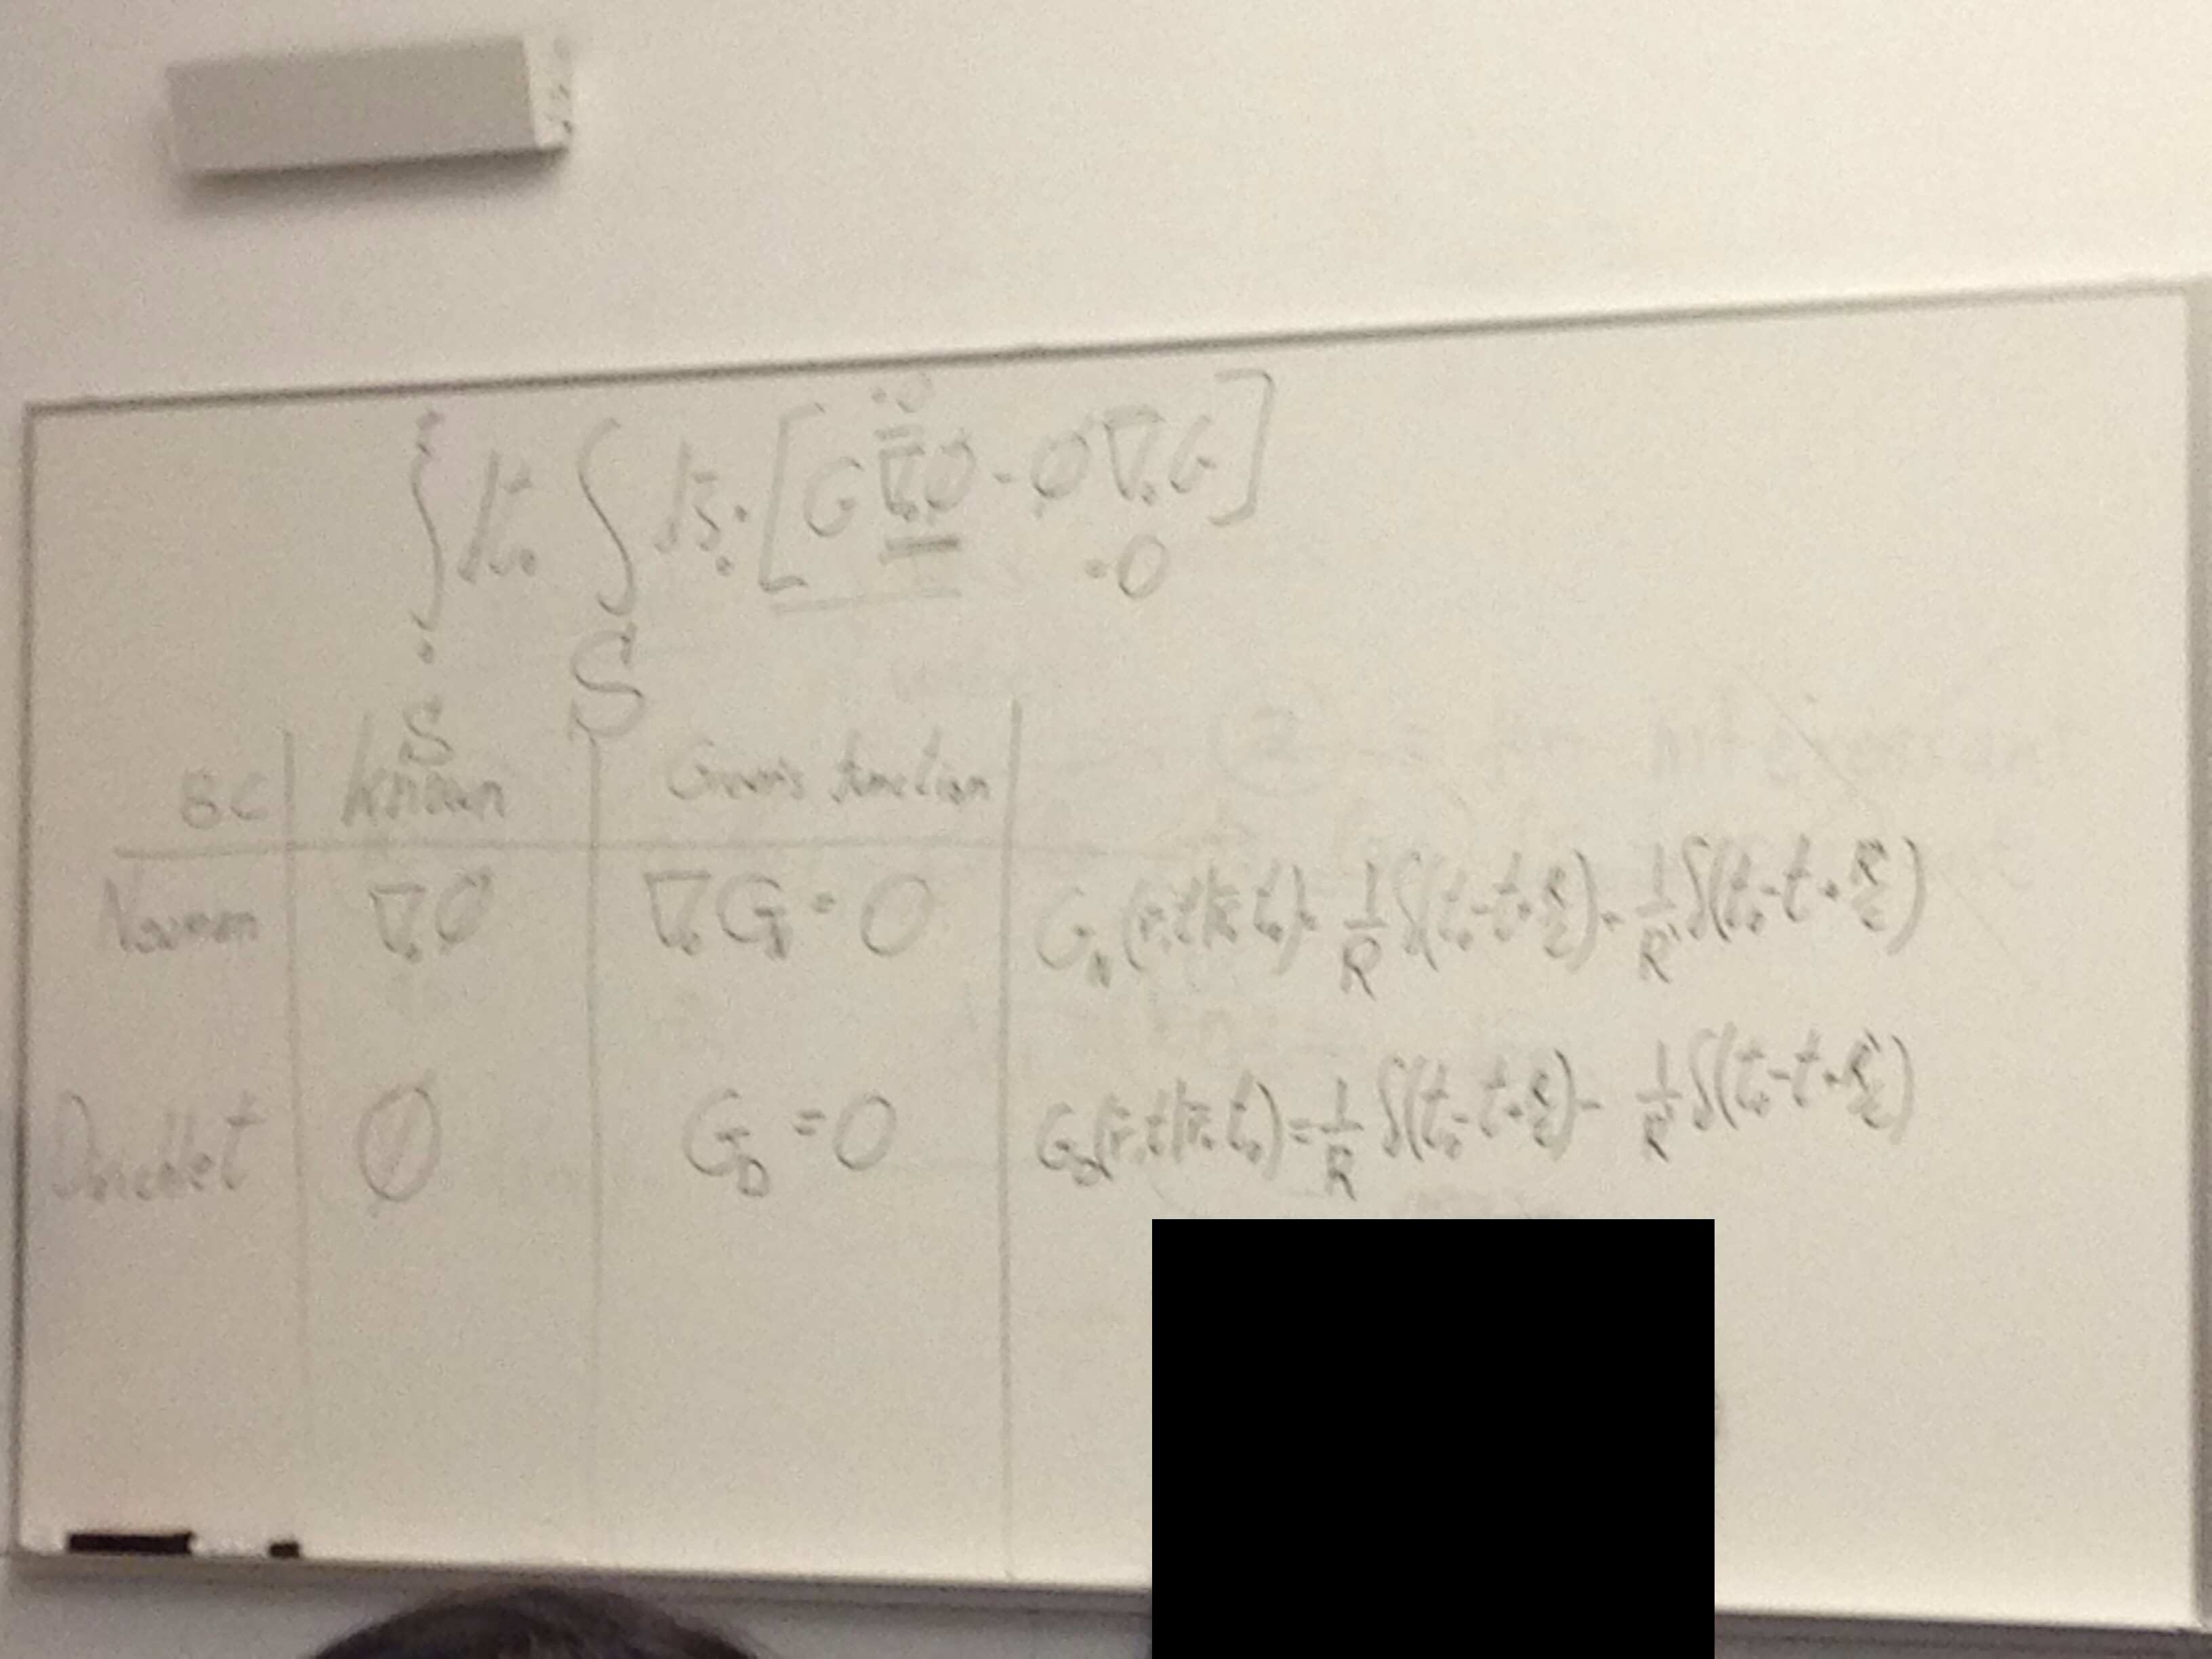 ∫ dt₀ ∫ dS₀ · [G ∇₀Ø - Ø ∇₀G]
= 0
S S
BC Known Green's function
∇₀Ø ∇₀G_N = 0 G_N(r̄,t|r̄₀,t₀) = 1/R δ(t₀-t+R/c) + 1/R' δ(t₀-t+R'/c)
Dirichlet Ø G_D = 0 G_D(r̄,t|r̄₀,t₀) = 1/R δ(t₀-t+R/c) - 1/R' δ(t₀-t+R'/c)